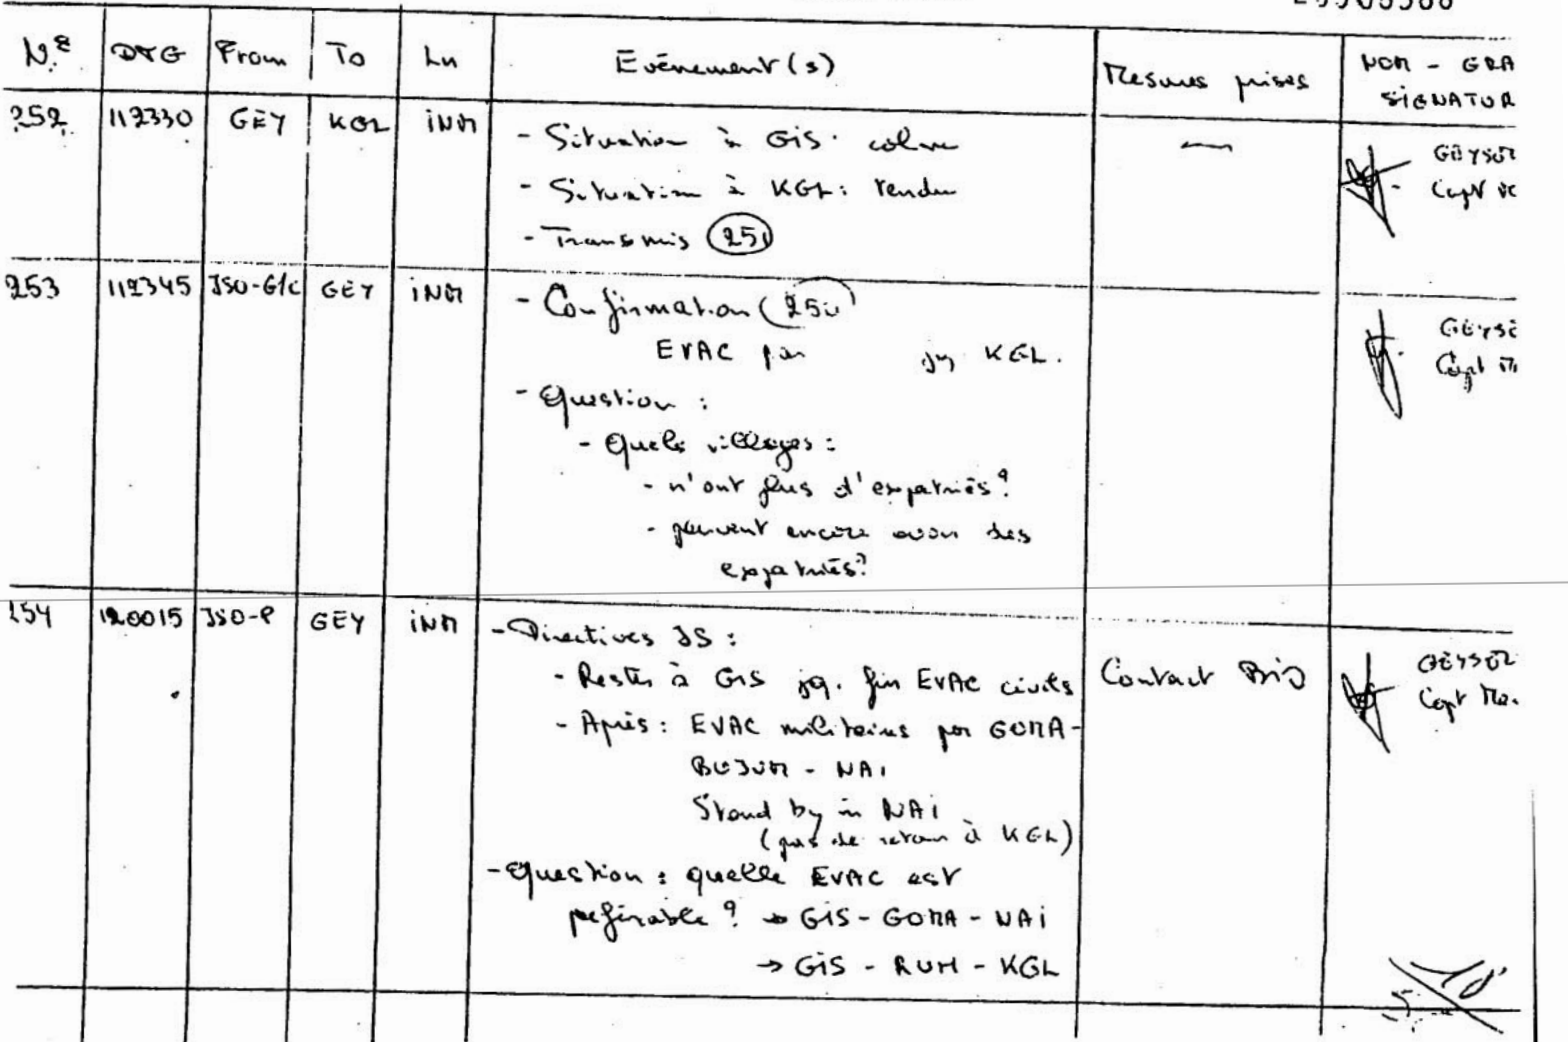 N.º DTG From To Ln Evénement(s) Mesures prises NOM - GRA
SIGNATUR
252 112330 GEY KGL INM - Situation à GIS: calme
- Situation à KGL: tendu
- Transmis 251
GEYSER
Capt
253 112345 JSO-G/C GEY INM - Confirmation 250
EVAC par KGL.
- Question :
- Quels villages :
- n'ont plus d'expatriés?
- peuvent encore avoir des
expatriés?
GEYSE
Capt
254 120015 JSO-P GEY INM - Directives JS :
- Rester à GIS jq. fin EVAC civils
Contact
GEYSER
Capt
- Après : EVAC militaires par GOMA-
BUJUM - NAI
Stand by in NAI
(pas de retour à KGL)
- Question : quelle EVAC est
préférable ? → GIS - GOMA - NAI
→ GIS - RUH - KGL